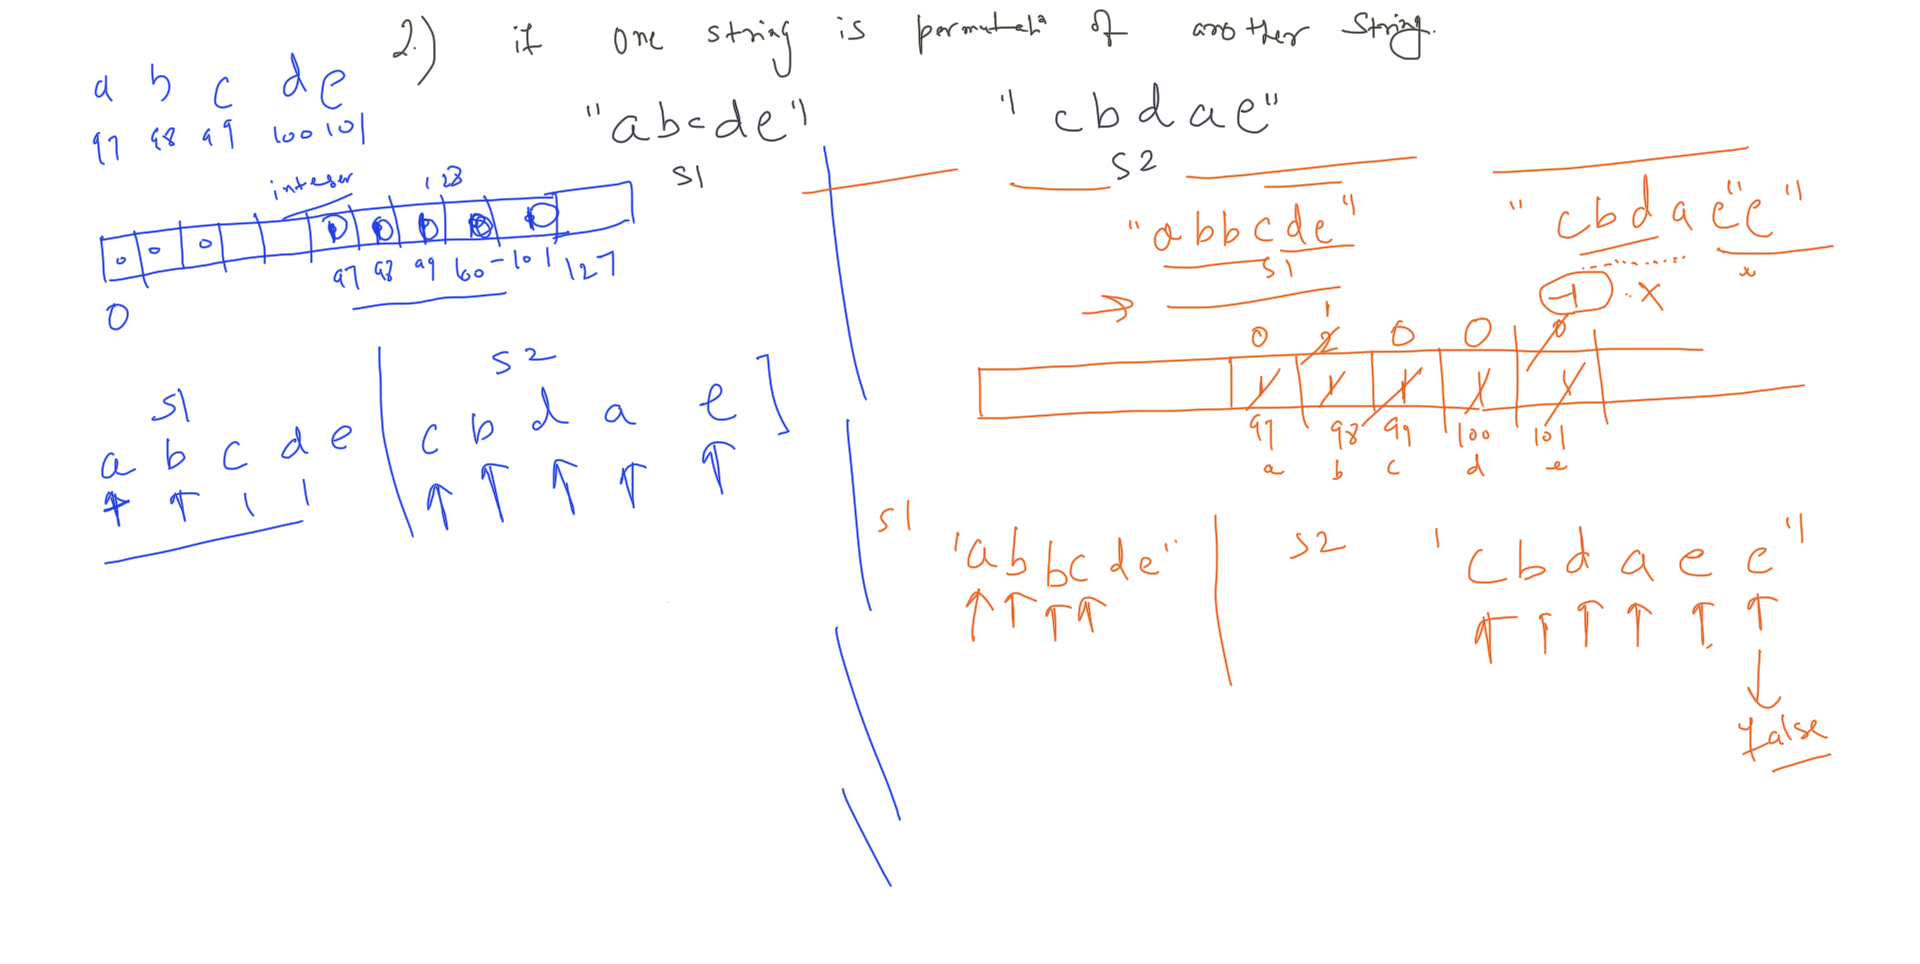 2.) if one string is permutatn of another string.
a b c d e
97 98 99 100 101
"abcde" "cbdae"
s1 s2
integer 128
0 0 0 0 0 0 0 0
97 98 99 100 - 101 127
0
s1 s2
a b c d e c b d a e
"abbcde" "cbdaee"
s1 e
-1 x
1
0 2 0 0 0
1 1 1 1 1
97 98 99 100 101
a b c d e
s1 s2
"abbcde" "cbdaee"
false